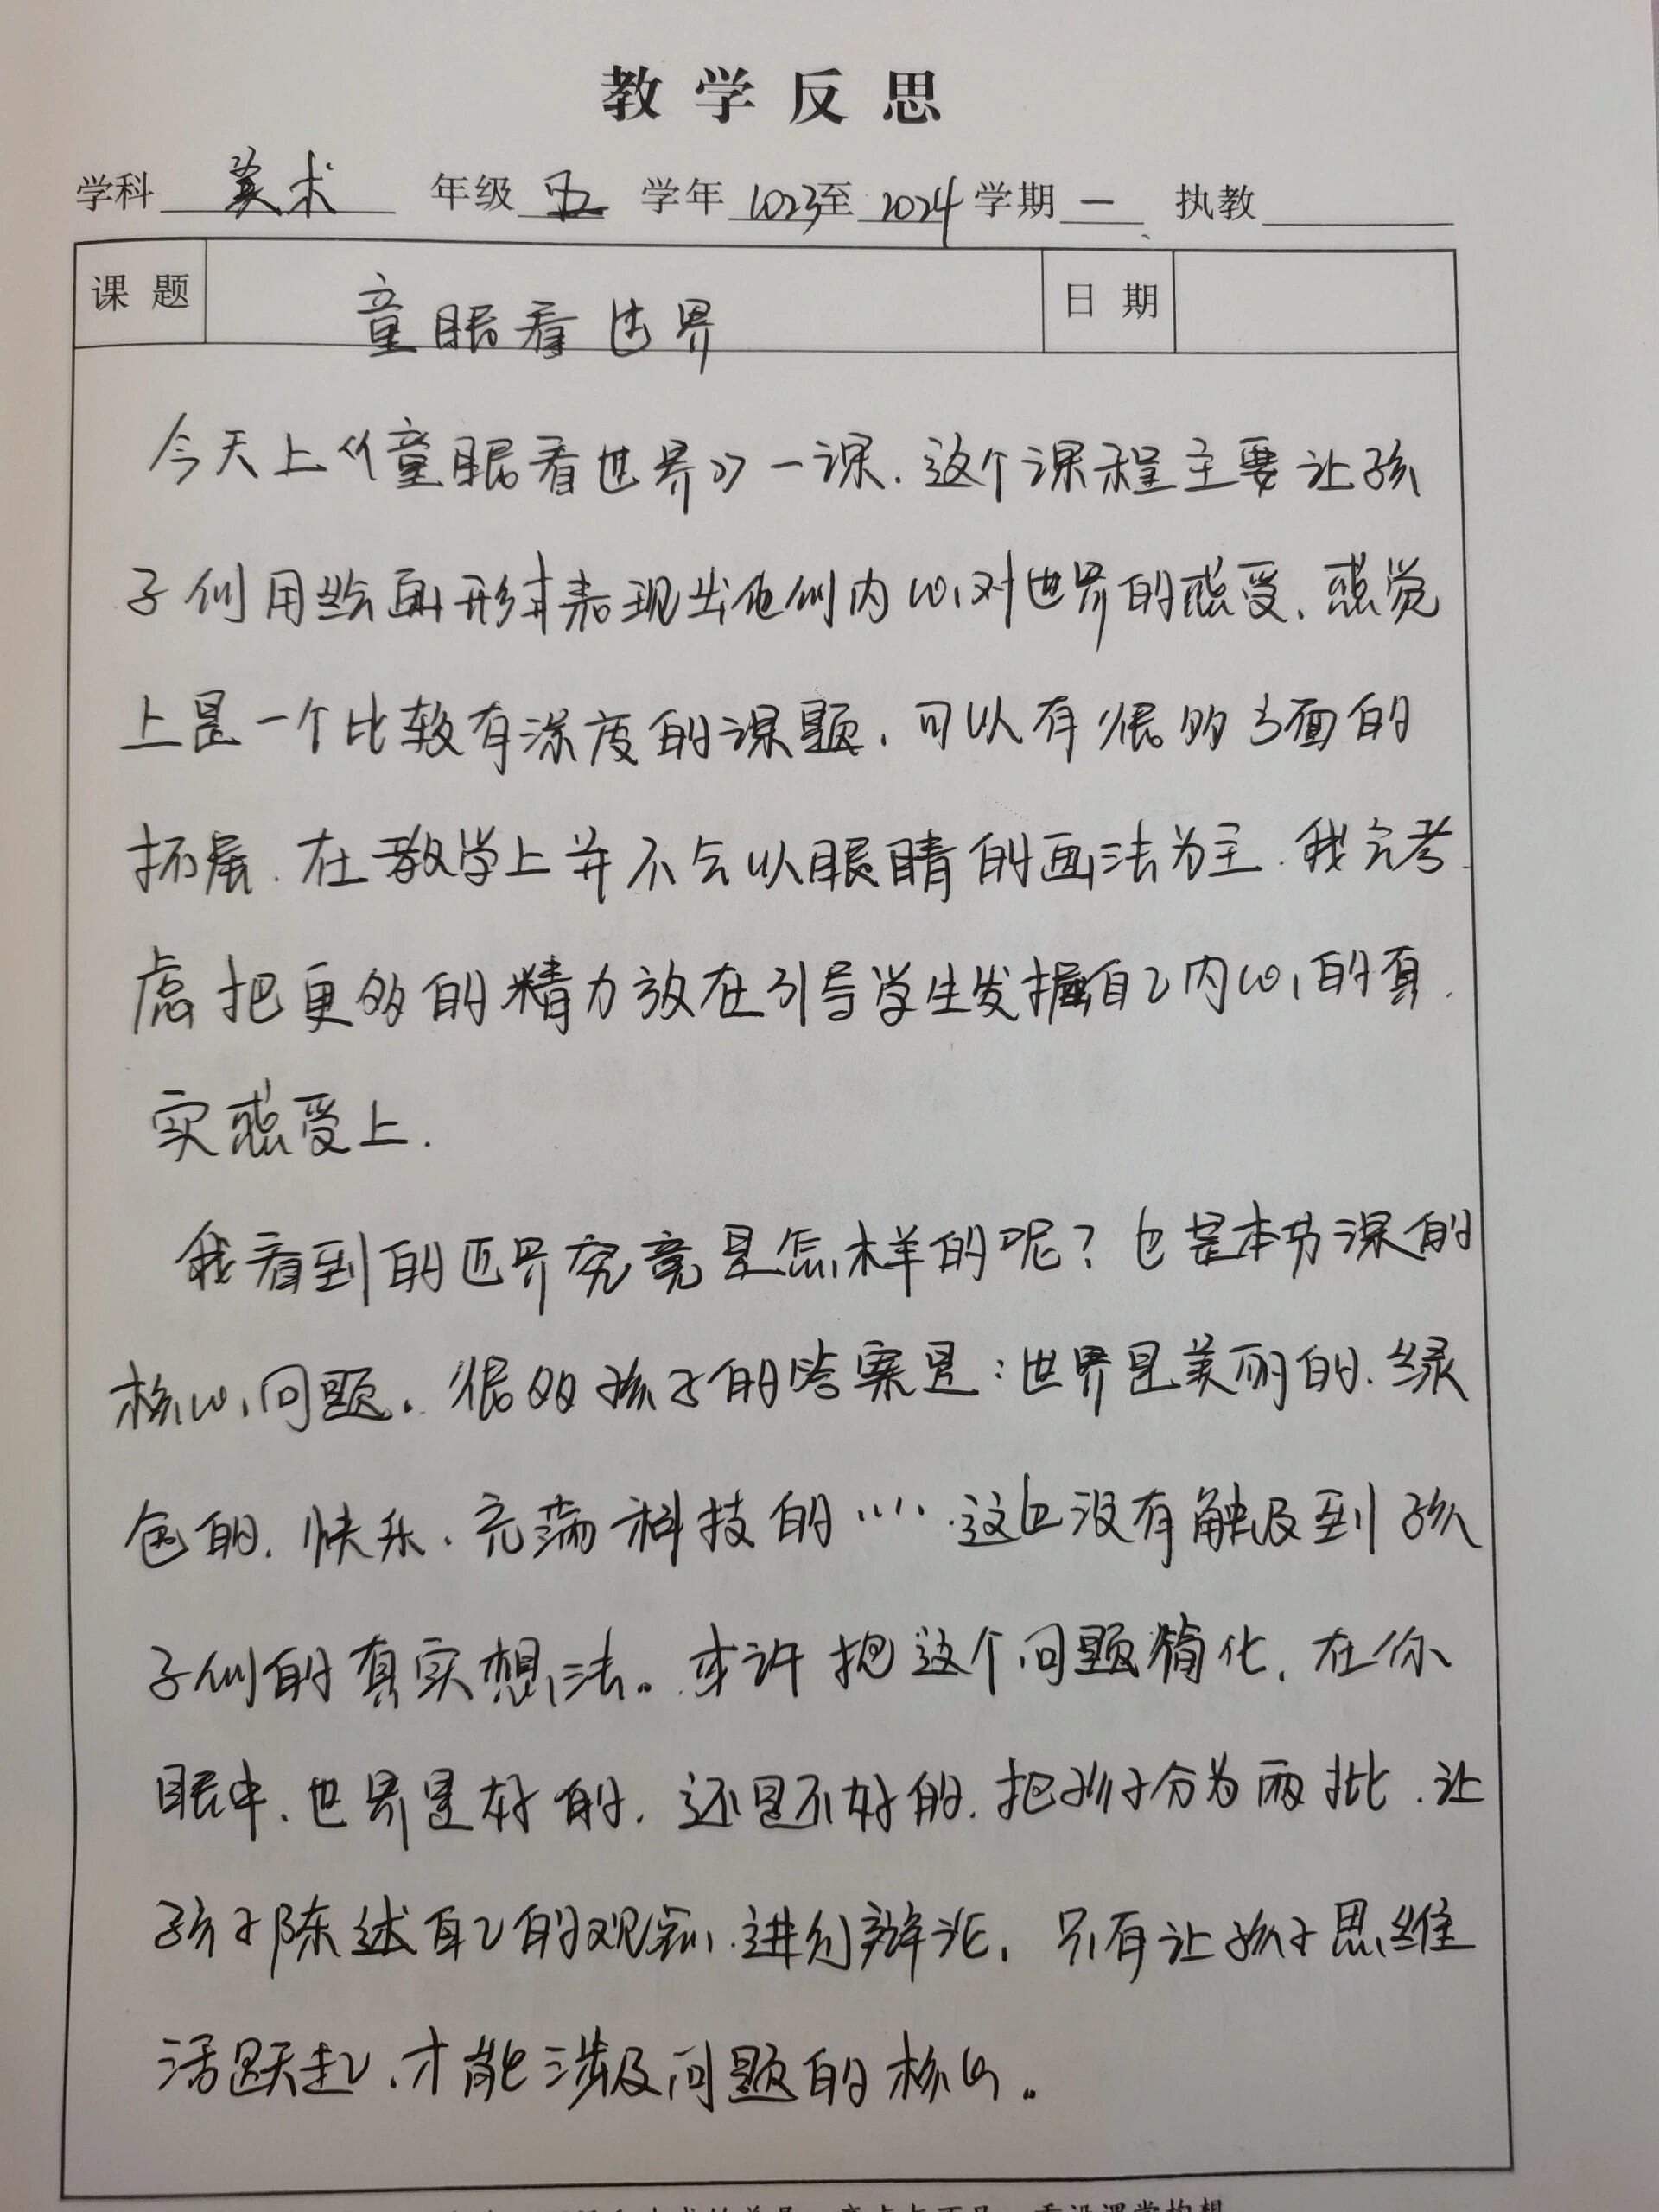 教学反思
学科 美术 年级 五 学年 2023至 2024 学期 一 执教
课题 童眼看世界 日期
今天上《童眼看世界》一课.这个课程主要让孩
子们用绘画形式表现出他们内心对世界的感受.感觉
上是一个比较有深度的课题.可以有很多方面的
拓展.在教学上并不会以眼睛的画法为主.我会考
虑把更多的精力放在引导学生发掘自己内心的真
实感受上.
我看到的世界究竟是怎样的呢?也是本节课的
核心问题.很多孩子的答案是:世界是美丽的.绿
色的.快乐.充满科技的……这还没有触及到孩
子们的真实想法。或许把这个问题简化.在你
眼中.世界是好的.还是不好的.把孩子分为两批.让
孩子陈述自己的观察.进行辩论.只有让孩子思维
活跃起.才能涉及问题的核心。